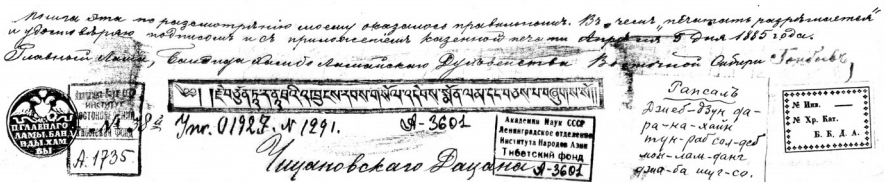 Книга эта по разсмотрѣнію моему оказалась правильною. Въ чемъ „печатать разрѣшается“
и удостовѣряю подписомъ и съ приложеніемъ казенной печати Апрѣля 5 дня 1885 года.
Главный Лама, Бандида Хамбо Ламайскаго Духовенства Восточной Сибири Гомбоевъ,
༄༅། །རྗེ་བཙུན་དཱ་ར་ནཱ་ཐའི་འཁྲུངས་རབས་གསོལ་འདེབས་སྨོན་ལམ་དང་བཅས་པ་བཞུགས་སོ། །
П. ГЛАВНАГО
ЛАМЫ. БАН.
ДЫ. ХАМ
БЫ
ИНСТИТУТ
А. 1735
Инв. 01927. N 1291.
А-3601
Академия Наук СССР
Ленинградское отделение
Института Народов Азии
Тибетский фонд
А-3601
Дацана
Гапсалъ
Дзиеб-дзун да-
ра-на-хаин
тун-раб сол-деб
мон-лам-данг
джа-ба шуг-со.
№ Инв.
№ Хр. Кат.
Б. В. Д. А.